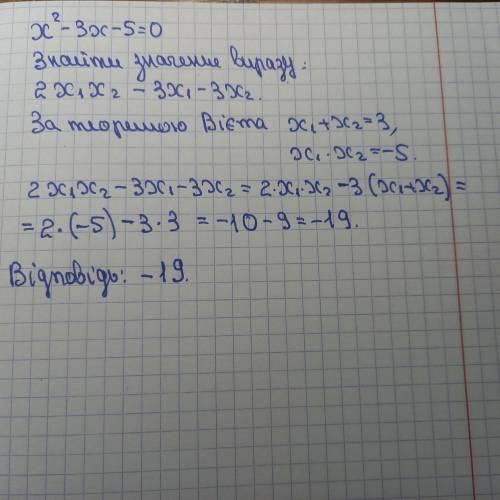 x² - 3x - 5 = 0
Знайти значення виразу:
2x₁x₂ - 3x₁ - 3x₂.
За теоремою Вієта x₁ + x₂ = 3,
x₁ · x₂ = -5.
2x₁x₂ - 3x₁ - 3x₂ = 2·x₁·x₂ - 3(x₁ + x₂) =
= 2·(-5) - 3·3 = -10 - 9 = -19.
Відповідь: -19.